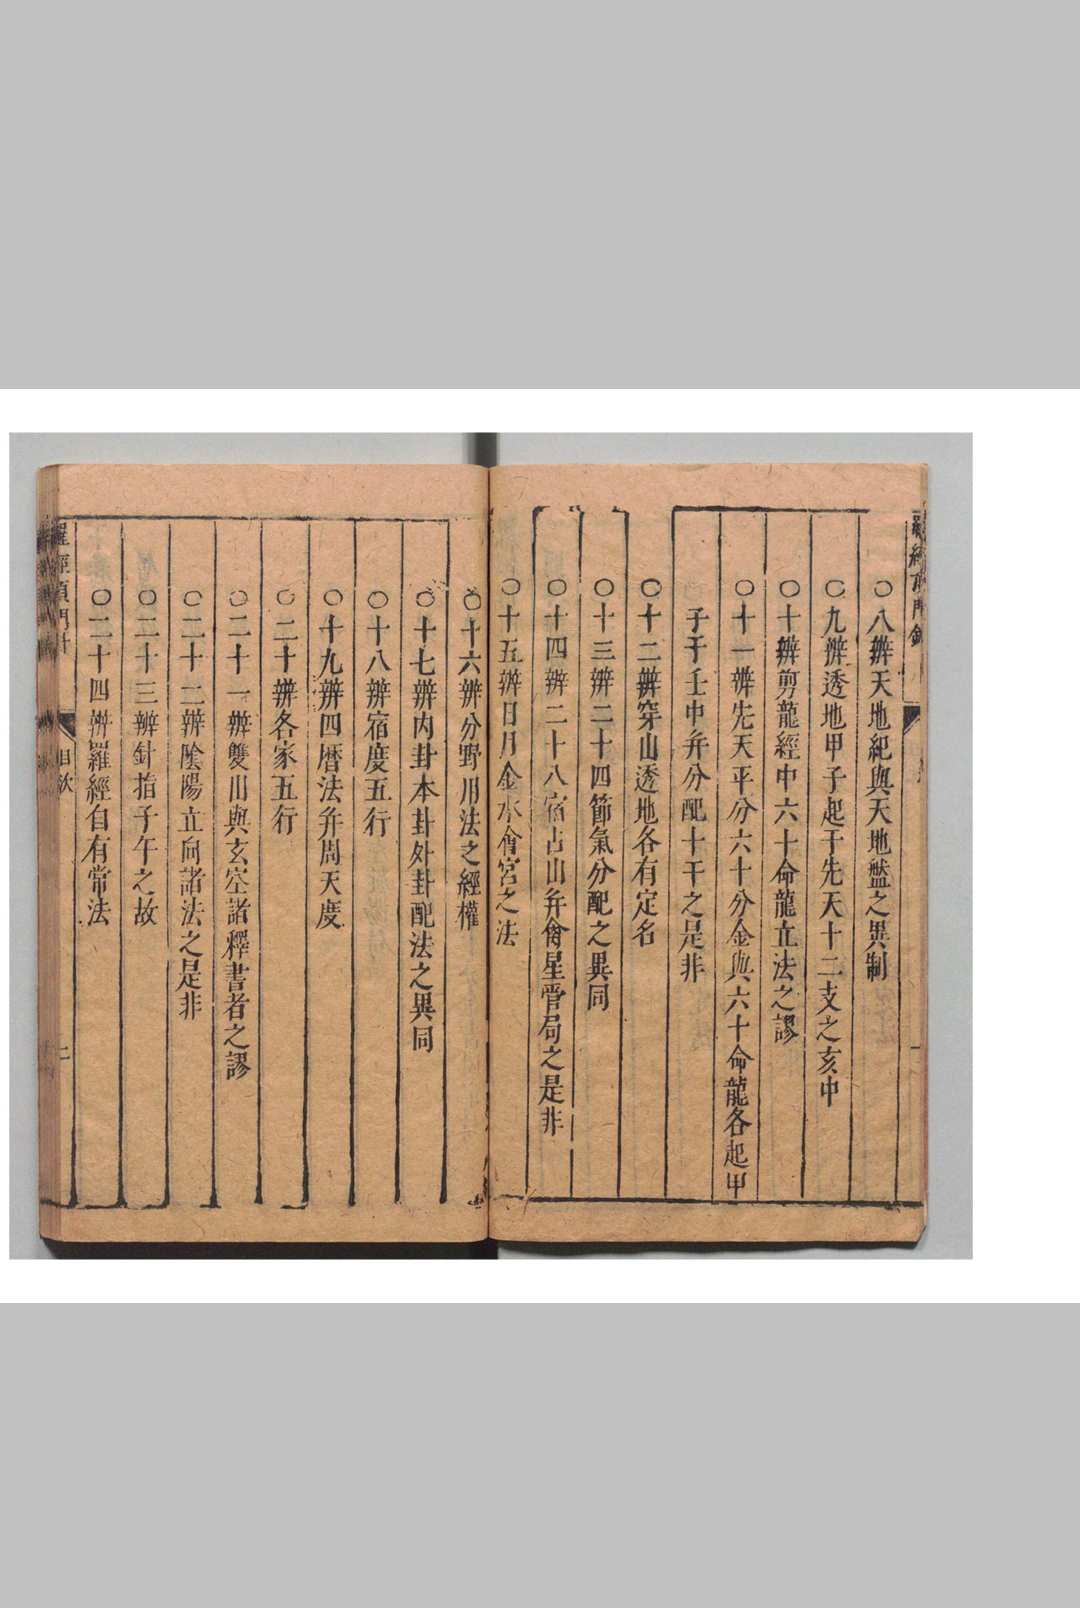 〇八辨天地紀與天地盤之異制
〇九辨透地甲子起于先天十二支之亥中
〇十辨剪龍經中六十命龍立法之謬
〇十一辨先天平分六十分金與六十命龍各起甲
子于壬中并分配十干之是非
〇十二辨穿山透地各有定名
〇十三辨二十四節氣分配之異同
〇十四辨二十八宿占山并禽星管局之是非
〇十五辨日月金水會宮之法
〇十六辨分野用法之經權
〇十七辨内卦本卦外卦配法之異同
〇十八辨宿度五行
〇十九辨四曆法并周天度
〇二十辨各家五行
〇二十一辨雙山與玄空諸釋書者之謬
〇二十二辨陰陽立向諸法之是非
〇二十三辨針指子午之故
〇二十四辨羅經自有常法
羅經頂門針
目次
二